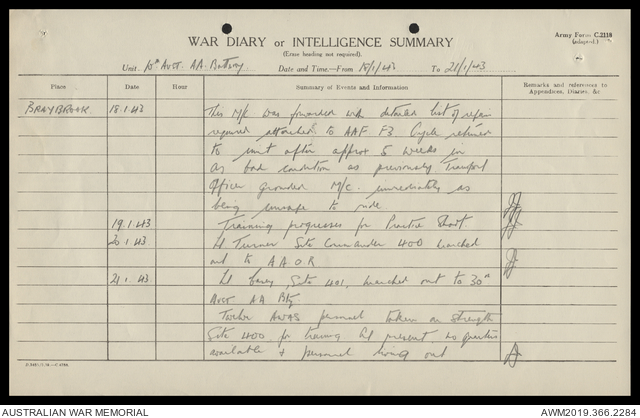 Army Form C.2118
(adapted.)
WAR DIARY or INTELLIGENCE SUMMARY
(Erase heading not required).
Unit. Aust. AA. Battery. Date and Time—From 18/1/43 To 21/1/43
Place Date Hour Summary of Events and Information Remarks and references to Appendices, Diaries, &c
BRAYBROOK 18.1.43 This M/C was forwarded with detailed list of repair
required attached to AAF F3 Cycle returned
to unit after approx 5 weeks in
as bad condition as previously Transport
Officer grounded M/C. immediately as
being unsafe to ride.
19.1.43 Training progresses for Practice Shoot.
20.1.43 Lt Turner Site Commander 400 marched
out to A A O R
21.1.43. Lt Casey, Site 401, marched out to 30th
Aust AA Bty
Twelve AWAS personnel taken on strength
Site 400 for training but at present no quarters
available & personnel living out
AUSTRALIAN WAR MEMORIAL
AWM2019.366.2284